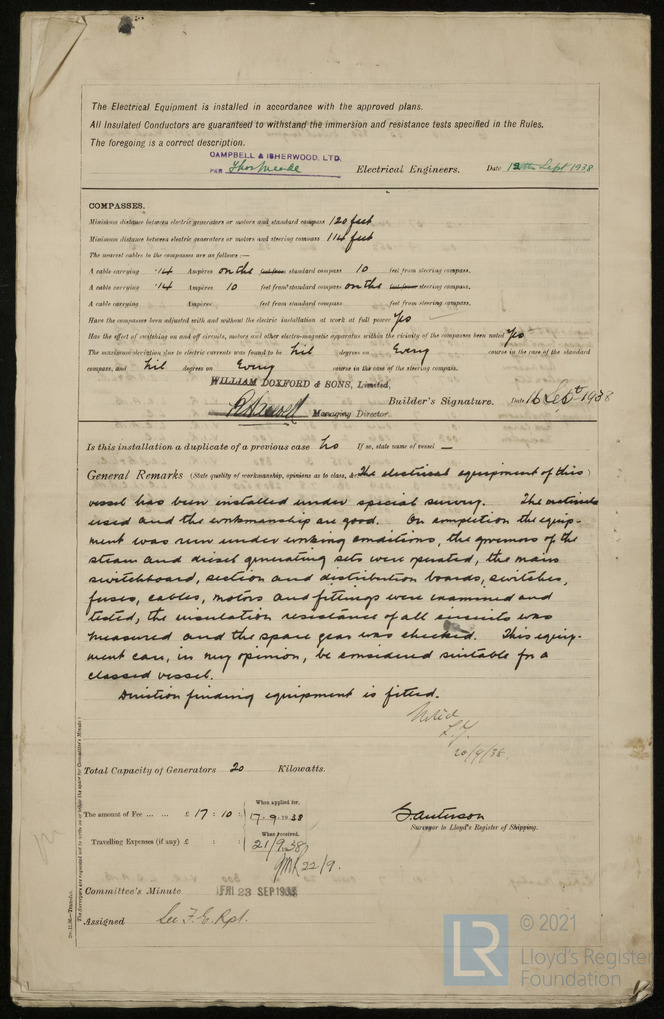 The Electrical Equipment is installed in accordance with the approved plans.
All Insulated Conductors are guaranteed to withstand the immersion and resistance tests specified in the Rules.
The foregoing is a correct description.
CAMPBELL & ISHERWOOD, LTD.
PER Electrical Engineers. Date Sept 1938
COMPASSES.
Minimum distance between electric generators or motors and standard compass 120 feet
Minimum distance between electric generators or motors and steering compass 114 feet
The nearest cables to the compasses are as follows:—
A cable carrying .14 Ampères on the feet from standard compass 10 feet from steering compass.
A cable carrying .14 Ampères 10 feet from standard compass on the feet from steering compass.
A cable carrying Ampères feet from standard compass feet from steering compass.
Have the compasses been adjusted with and without the electric installation at work at full power Yes
Has the effect of switching on and off circuits, motors and other electro-magnetic apparatus within the vicinity of the compasses been noted Yes
The maximum deviation due to electric currents was found to be Nil degrees on Every course in the case of the standard
compass, and Nil degrees on Every course in the case of the steering compass.
WILLIAM DOXFORD & SONS, Limited,
Managing Director. Builder's Signature. Date 16 Sept 1938
Is this installation a duplicate of a previous case No If so, state name of vessel —
General Remarks (State quality of workmanship, opinions as to class, &c.) The electrical equipment of this
vessel has been installed under special survey. The materials
used and the workmanship are good. On completion the equip-
ment was run under working conditions, the governors of the
steam and diesel generating sets were operated, the main
switchboard, section and distribution boards, switches,
fuses, cables, motors and fittings were examined and
tested, the insulation resistance of all circuits was
measured and the spare gear was checked. This equip-
ment can, in my opinion, be considered suitable for a
classed vessel.
Direction finding equipment is fitted.
Noted
20/9/38.
Total Capacity of Generators 20 Kilowatts.
When applied for,
The amount of Fee ... ... £ 17 : 10 : 17.9.1938
When received,
Travelling Expenses (if any) £ : : 21/9.38
22/9.
Surveyor to Lloyd's Register of Shipping.
Committee's Minute FRI 23 SEP 1938
Assigned See F.E. Rpt.
The Surveyors are requested not to write on or below the space for Committee's Minute.
© 2021
LR
Lloyd's Register
Foundation